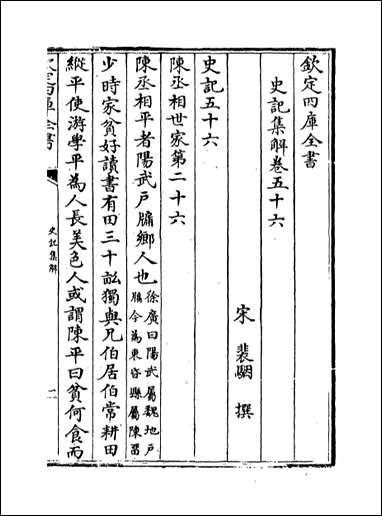 欽定四庫全書
史記集解卷五十六
宋 裴駰 撰
史記五十六
陳丞相世家第二十六
陳丞相平者陽武戶牖鄉人也
徐廣曰陽武屬魏地戶
牖今為東昏縣屬陳留
少時家貧好讀書有田三十畝獨與兄伯居伯常耕田
縱平使游學平為人長美色人或謂陳平曰貧何食而
史記集解